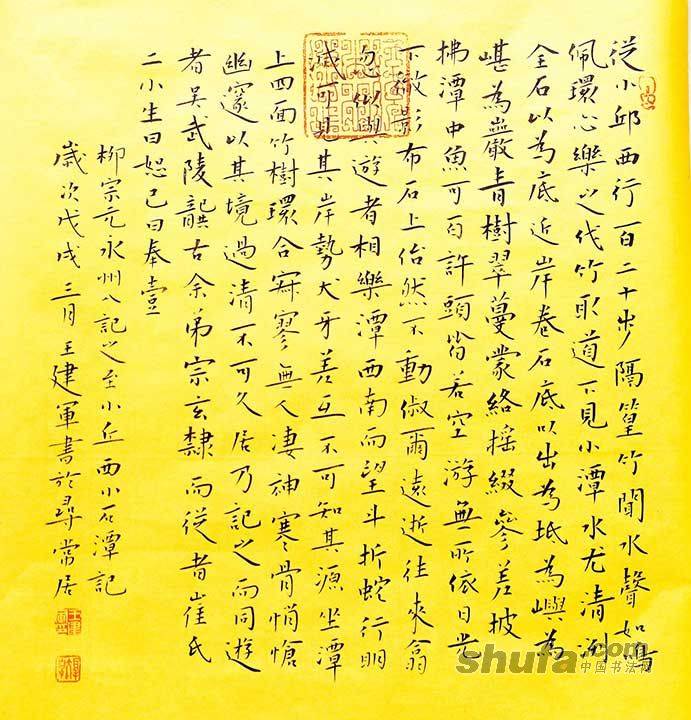 從小邱西行百二十步隔篁竹聞水聲如鳴
佩環心樂之伐竹取道下見小潭水尤清洌
全石以為底近岸卷石底以出為坻為嶼為
嵁為巖青樹翠蔓蒙絡搖綴參差披
拂潭中魚可百許頭皆若空游無所依日光
下徹影布石上佁然不動俶爾遠逝往來翕
忽似與遊者相樂潭西南而望斗折蛇行明
滅可見其岸勢犬牙差互不可知其源坐潭
上四面竹樹環合寂寥無人淒神寒骨悄愴
幽邃以其境過清不可久居乃記之而同遊
者吳武陵龔古余弟宗玄隸而從者崔氏
二小生曰恕己曰奉壹
柳宗元永州八記之至小丘西小石潭記
歲次戊戌三月王建軍書於尋常居
shufa.com
中国书法网